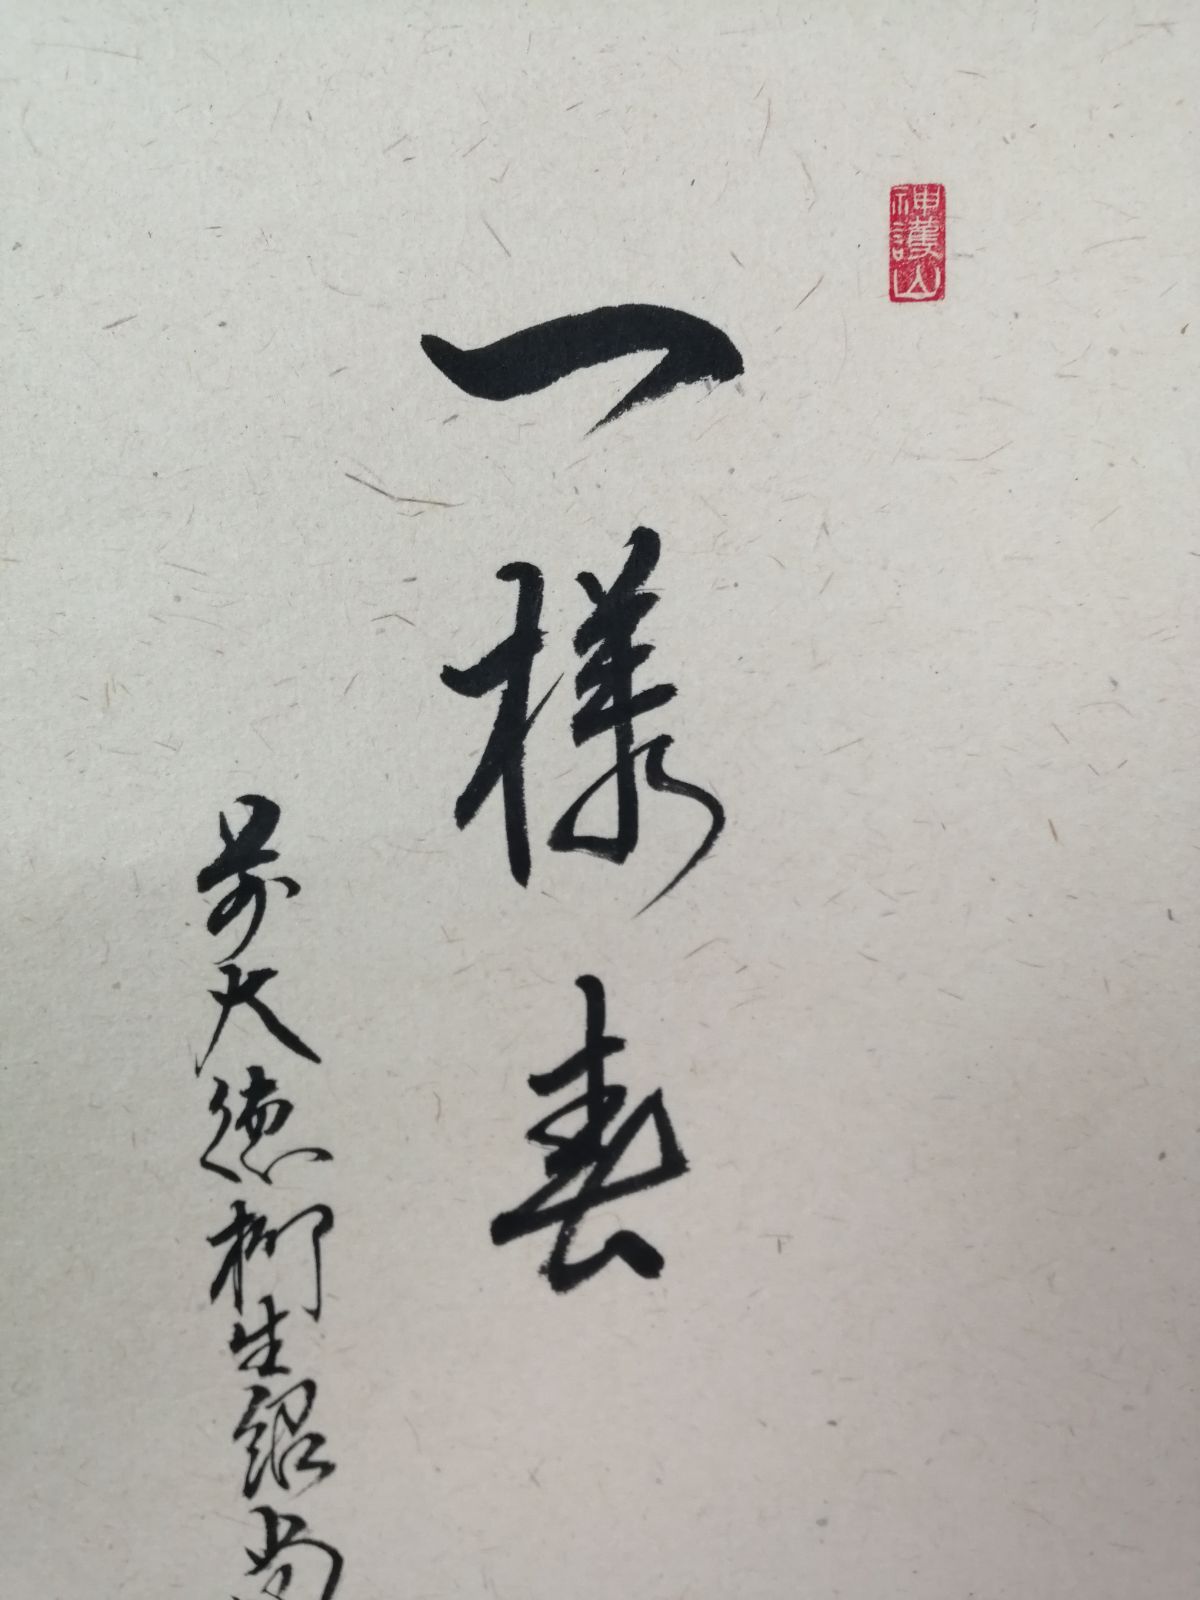 神護山
一様春
前大徳柳生紹尚